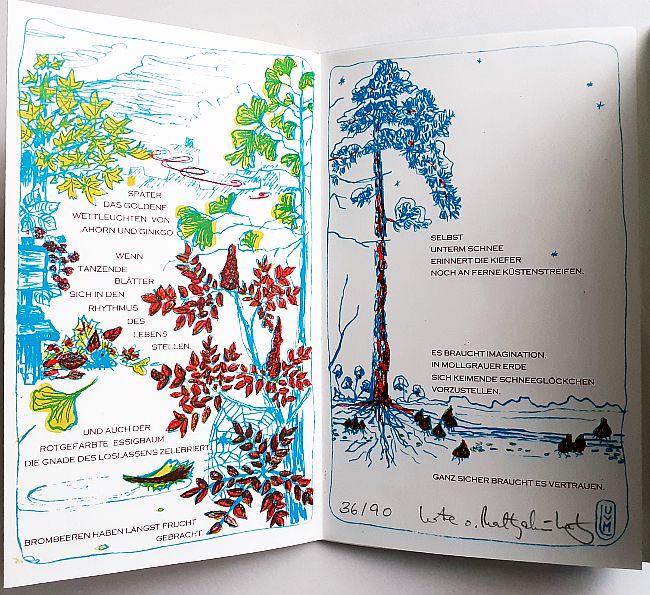 SPÄTER
DAS GOLDENE
WETTLEUCHTEN VON
AHORN UND GINKGO.
WENN
TANZENDE
BLÄTTER
SICH IN DEN
RHYTHMUS
DES
LEBENS
STELLEN.
UND AUCH DER
ROTGEFÄRBTE ESSIGBAUM
DIE GNADE DES LOSLASSENS ZELEBRIERT.
BROMBEEREN HABEN LÄNGST FRUCHT
GEBRACHT
SELBST
UNTERM SCHNEE
ERINNERT DIE KIEFER
NOCH AN FERNE KÜSTENSTREIFEN.
ES BRAUCHT IMAGINATION,
IN MOLLGRAUER ERDE
SICH KEIMENDE SCHNEEGLÖCKCHEN
VORZUSTELLEN.
GANZ SICHER BRAUCHT ES VERTRAUEN.
36/90